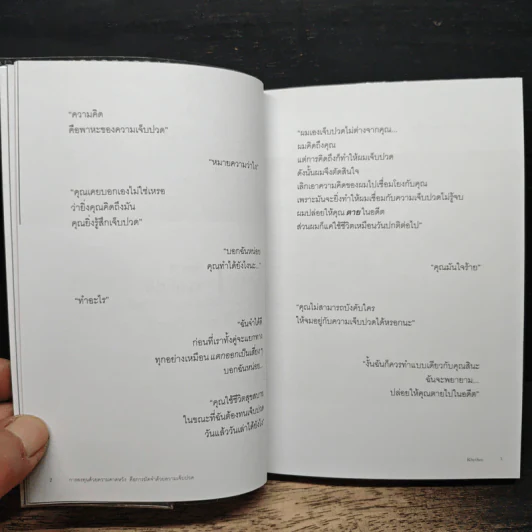 "ความคิด
คือพาหะของความเจ็บปวด"
"หมายความว่าไง"
"คุณเคยบอกเองไม่ใช่เหรอ
ว่ายิ่งคุณคิดถึงมัน
คุณยิ่งรู้สึกเจ็บปวด"
"บอกฉันหน่อย
คุณทำได้ยังไงนะ..."
"ทำอะไร"
"ฉันจำได้ดี
ก่อนที่เราทั้งคู่จะแยกทาง
ทุกอย่างเหมือน แตกออกเป็นเสี่ยง ๆ
บอกฉันหน่อย...
"คุณใช้ชีวิตสุขสบาย
ในขณะที่ฉันต้องทนเจ็บปวด
วันแล้ววันเล่าได้ยังไง"
2
"ผมเองเจ็บปวดไม่ต่างจากคุณ...
ผมคิดถึงคุณ
แต่การคิดถึงก็ทำให้ผมเจ็บปวด
ดังนั้นผมจึงตัดสินใจ
เลิกเอาความคิดของผมไปเชื่อมโยงกับคุณ
เพราะมันจะยิ่งทำให้ผมเชื่อมกับความเจ็บปวดไม่รู้จบ
ผมปล่อยให้คุณ ตาย ในอดีต
ส่วนผมก็แค่ใช้ชีวิตเหมือนวันปกติต่อไป"
"คุณมันใจร้าย"
"คุณไม่สามารถบังคับใคร
ให้จมอยู่กับความเจ็บปวดได้หรอกนะ"
"งั้นฉันก็ควรทำแบบเดียวกับคุณสินะ
ฉันจะพยายาม...
ปล่อยให้คุณตายไปในอดีต"